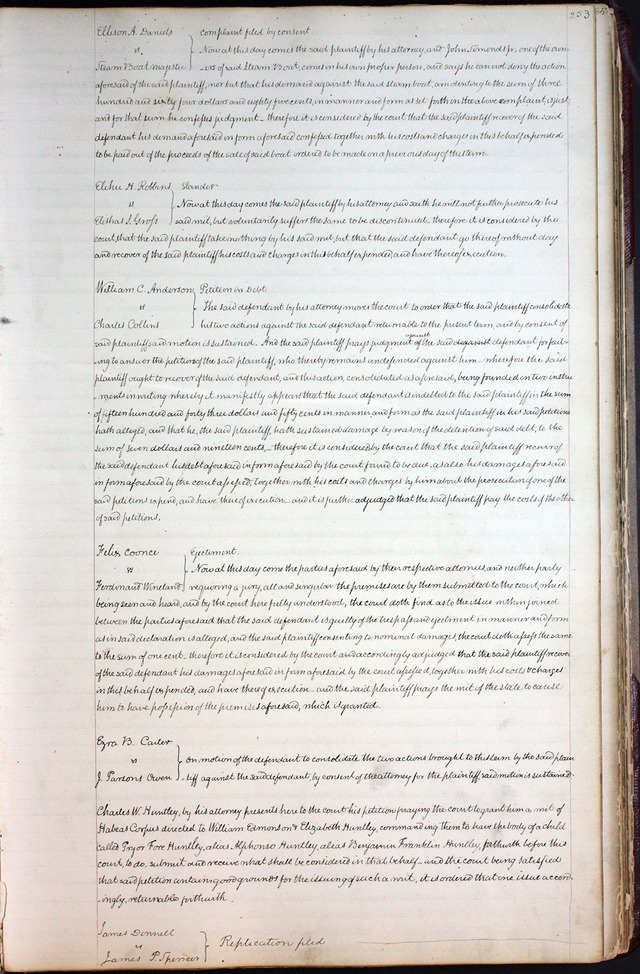 253
Ellison A. Daniels } complaint filed by consent.
vs. } Now at this day comes the said plaintiff by his attorney, and John Simonds Jr. one of the own-
Steam Boat Majestic } ers of said Steam Boat, comes in his own proper person, and says he can not deny the action
aforesaid of the said plaintiff, nor but that his demand against the said steam boat, amounting to the sum of three
hundred and sixty four dollars and eighty five cents, in manner and form as set forth in the above complaint, is just
and for that sum he confesses judgment — therefore it is considered by the court that the said plaintiff recover of the said
defendant his demand aforesaid in form aforesaid confessed together with his costs and charges in this behalf expended
to be paid out of the proceeds of the sale of said boat ordered to be made on a previous day of this term.
Elihu H. Robbins } Slander
vs } Now at this day comes the said plaintiff by his attorney and saith he will not further prosecute his
Elishas S. Gross } said suit, but voluntarily suffers the same to be discontinued — therefore it is considered by the
court, that the said plaintiff take nothing by his said suit, but that the said defendant go thereof without day
and recover of the said plaintiff his costs and charges in this behalf expended, and have thereof execution.
William C. Anderson } Petition in Debt
vs } The said defendant by his attorney moves the court to order that the said plaintiff consolidate
Charles Collins } his two actions against the said defendant returnable to the present term, and by consent of
said plaintiff said motion is sustained. And the said plaintiff prays judgment against of the said defendant for fail-
ing to answer the petitions of the said plaintiff, who thereby remains undefended against him — wherefore the said
plaintiff ought to recover of the said defendant, and this action, consolidated as aforesaid, being founded on two instru-
ments in writing whereby it manifestly appears that the said defendant is indebted to the said plaintiff in the sum
of fifteen hundred and forty three dollars and fifty cents in manner and form as the said plaintiff in his said petitions
hath alleged, and that he, the said plaintiff, hath sustained damage by reason of the detention of said debt, to the
sum of seven dollars and nineteen cents, — therefore it is considered by the court that the said plaintiff recover of
the said defendant his debt aforesaid in form aforesaid by the court found to be due, as also his damages aforesaid
in form aforesaid by the court assessed, together with his costs and charges by him about the prosecution of one of the
said petitions expend, and have thereof execution — and it is further adjudged that the said plaintiff pay the costs of the other
of said petitions.
Felix Coonce } Ejectment.
vs } Now at this day come the parties aforesaid by their respective attornies, and neither party
Ferdinand Wineland } requiring a jury, all and singular the premises are by them submitted to the court, which
being seen and heard, and by the court here fully understood, the court doth find as to the issue within joined
between the parties aforesaid that the said defendant is guilty of the trespass and ejectment in manner and form
as in said declaration is alleged, and the said plaintiff consenting to nominal damages, the court doth assess the same
to the sum of one cent — therefore it is considered by the court and accordingly adjudged that the said plaintiff recover
of the said defendant his damages aforesaid in form aforesaid by the court assessed, together with his costs & charges
in this behalf expended, and have thereof execution — and the said plaintiff prays the writ of the state to cause
him to have possession of the premises aforesaid, which is granted.
Ezra B. Carter }
vs } On motion of the defendant to consolidate the two actions brought to this term by the said plain-
J. Parsons Owen } tiff against the said defendant, by consent of the attorney for the plaintiff said motion is sustained.
Charles W. Huntley, by his attorney presents here to the court his petition praying the court to grant him a writ of
Habeas Corpus directed to William Edmonson & Elizabeth Huntley, commanding them to have the body of a child
called Pryor Fore Huntley, alias Alphonso Huntley, alias Benjamin Franklin Huntley, forthwith before this
court, to do, submit and receive what shall be considered in that behalf — and the court being satisfied
that said petition contains good grounds for the issuing of such a writ, it is ordered that one issue accord-
ingly, returnable forthwith.
James Donnell }
vs } Replication filed
James P. Spencer }